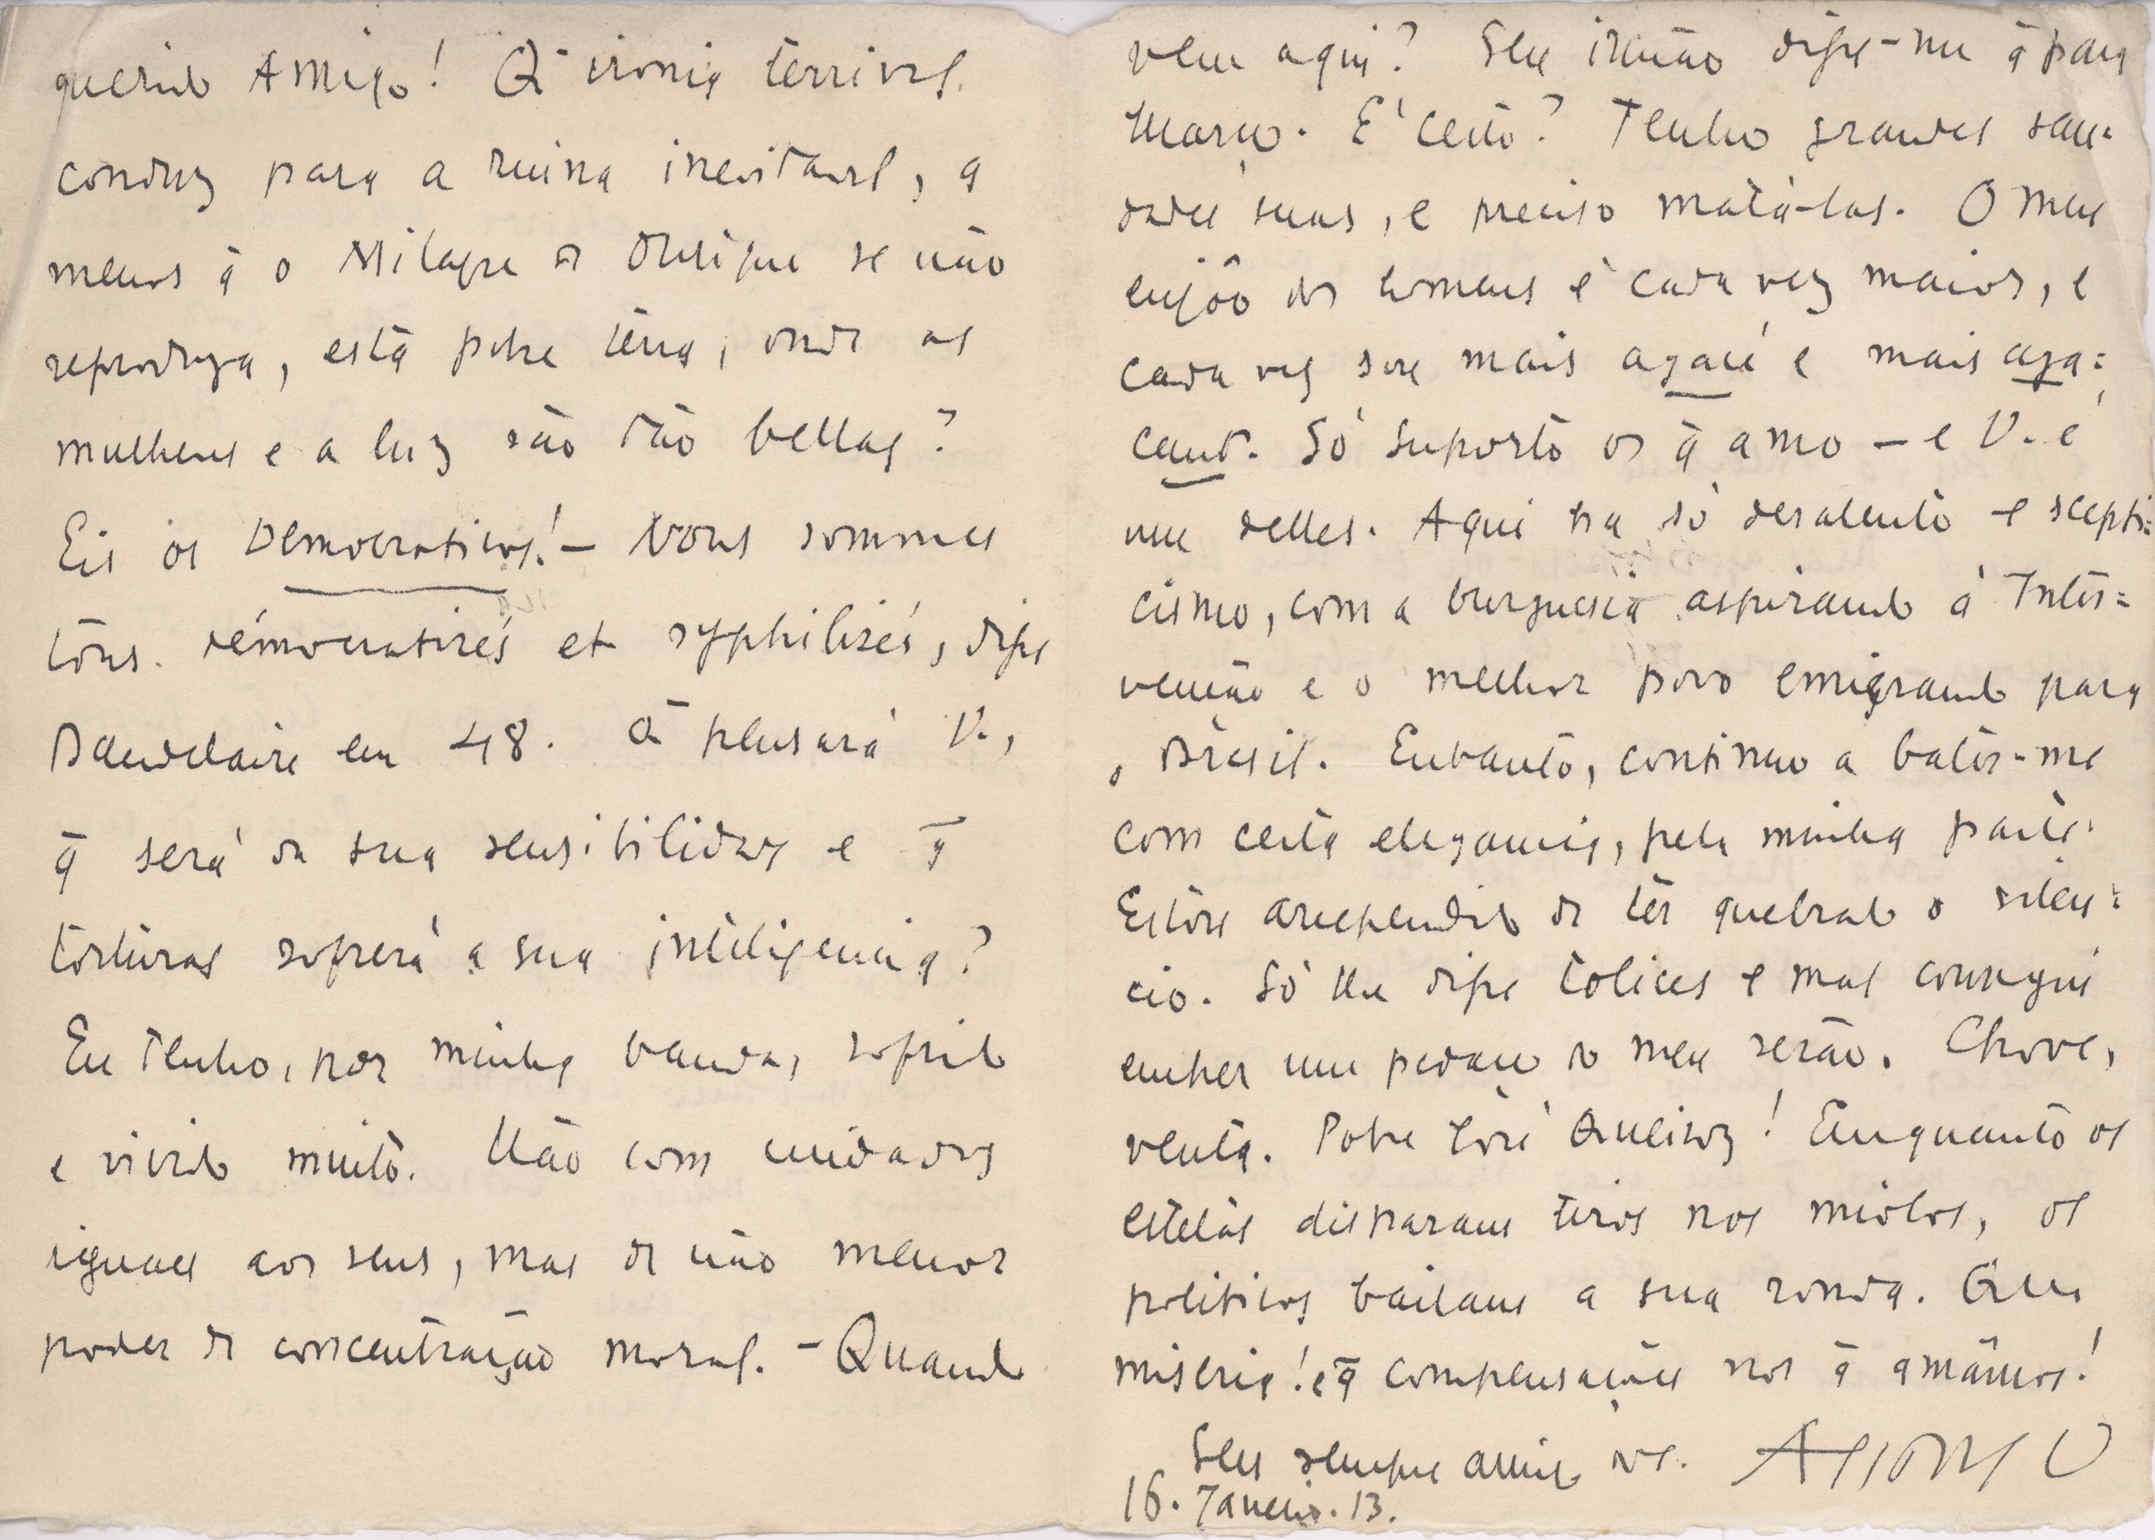 querido Amigo! Q̄ ironia terrivel
conduz para a ruina inevitavel, a
menos q̄ o Milagre de Ourique se não
reproduza, está pobre terra, onde as
mulheres e a luz são tão bellas?
Eis os Democraticos! – Nous sommes
tous démocratisés et syphilisés, disse
Baudelaire em 48. Q̄ pensará V.,
q̄ será da sua sensibilidade e q̄
torturas sofrerá a sua inteligencia?
Eu tenho, por minha banda, sofrido
e vivido muito. Não com cuidados
iguaes aos seus, mas de não menor
poder de concentração moral. – Quando
vem aqui? Seu irmão disse-me q̄ para
Março. É certo? Tenho grandes sau=
dades suas, e preciso matá-las. O meu
enjôo dos homens é cada vez maior, e
cada vez sou mais agacé e mais aga=
cant. Só suporto os q̄ amo – e V. é
um delles. Aqui ha só desalento e scepti=
cismo, com a burguesia aspirando á Inter=
venção e o melhor povo emigrando para
o Brasil. Entanto, continuo a bater-me
com certa elegancia, pela minha parte.
Estou arrependido de ter quebrado o silen=
cio. Só lhe disse tolices e mal consegui
encher um pedaço do meu serão. Chove,
venta. Pobre José Queiroz! Emquanto os
estetas disparam tiros nos miolos, os
politicos bailam a sua ronda. Que
miseria! e q̄ compensações nos q̄ amâmos!
Seu sempre amigo
16. Janeiro. 13.